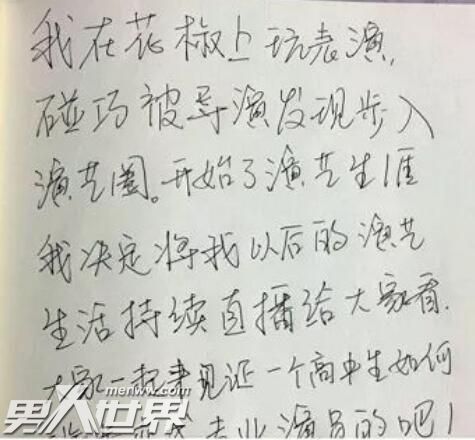 我在花椒上玩表演,
碰巧被导演发现步入
演艺圈。开始了演艺生涯
我决定将我以后的演艺
生活持续直播给大家看.
大家一起来见证一个高中生如何
专业演员的吧!
menww.com
男人世界